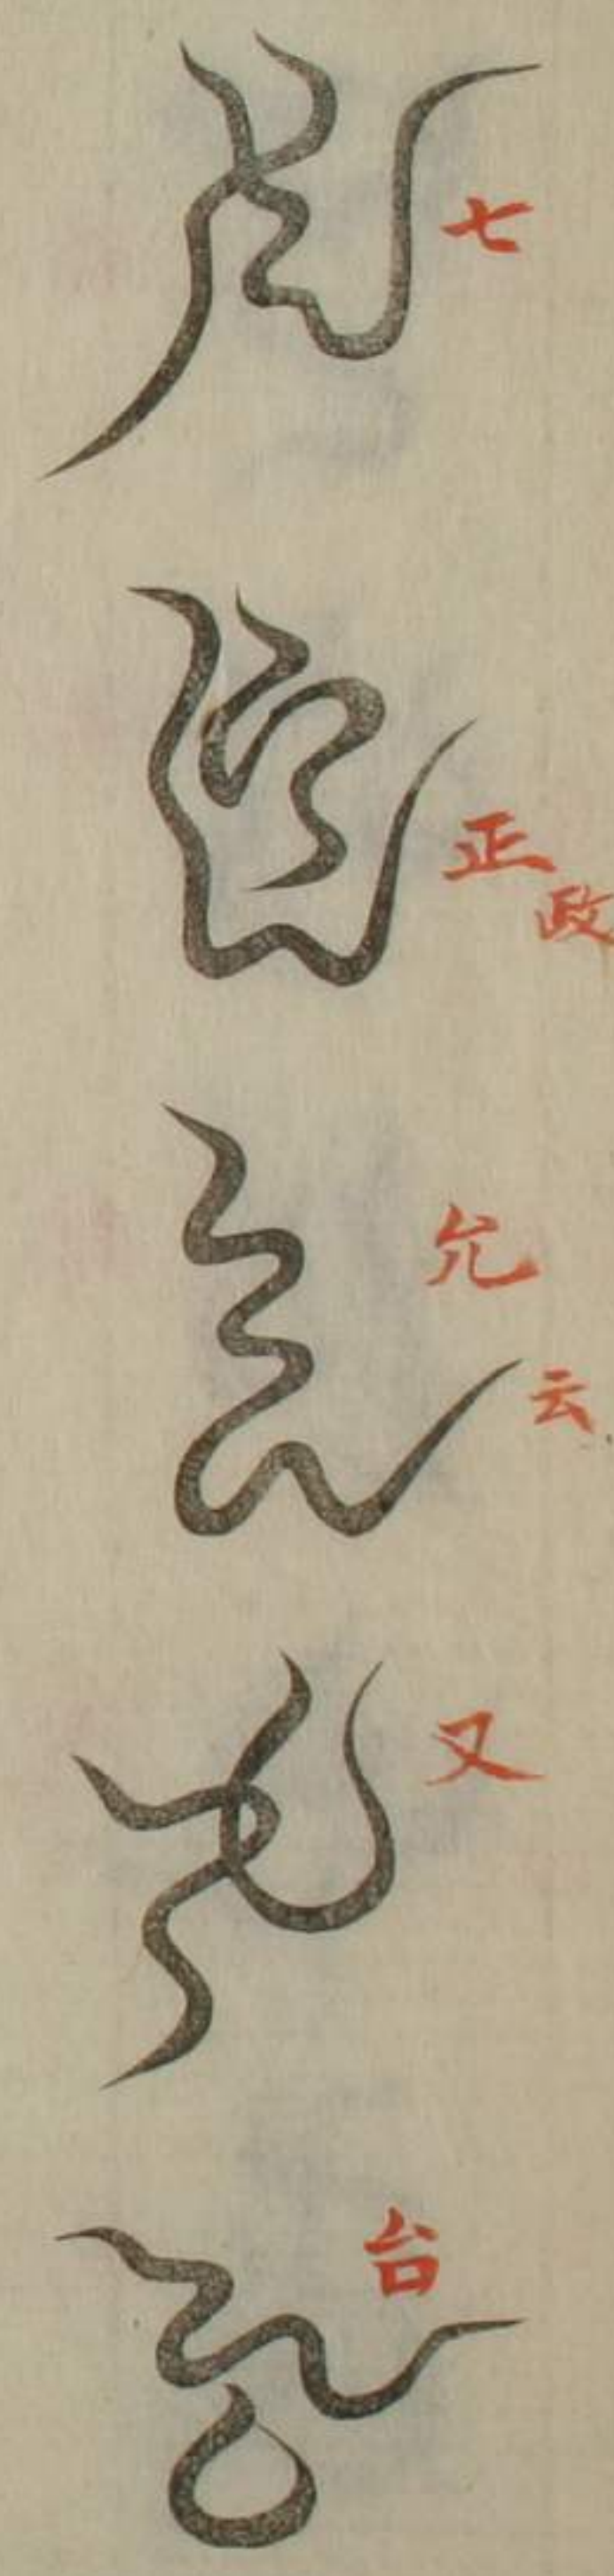 七
正
政
允
云
又
台